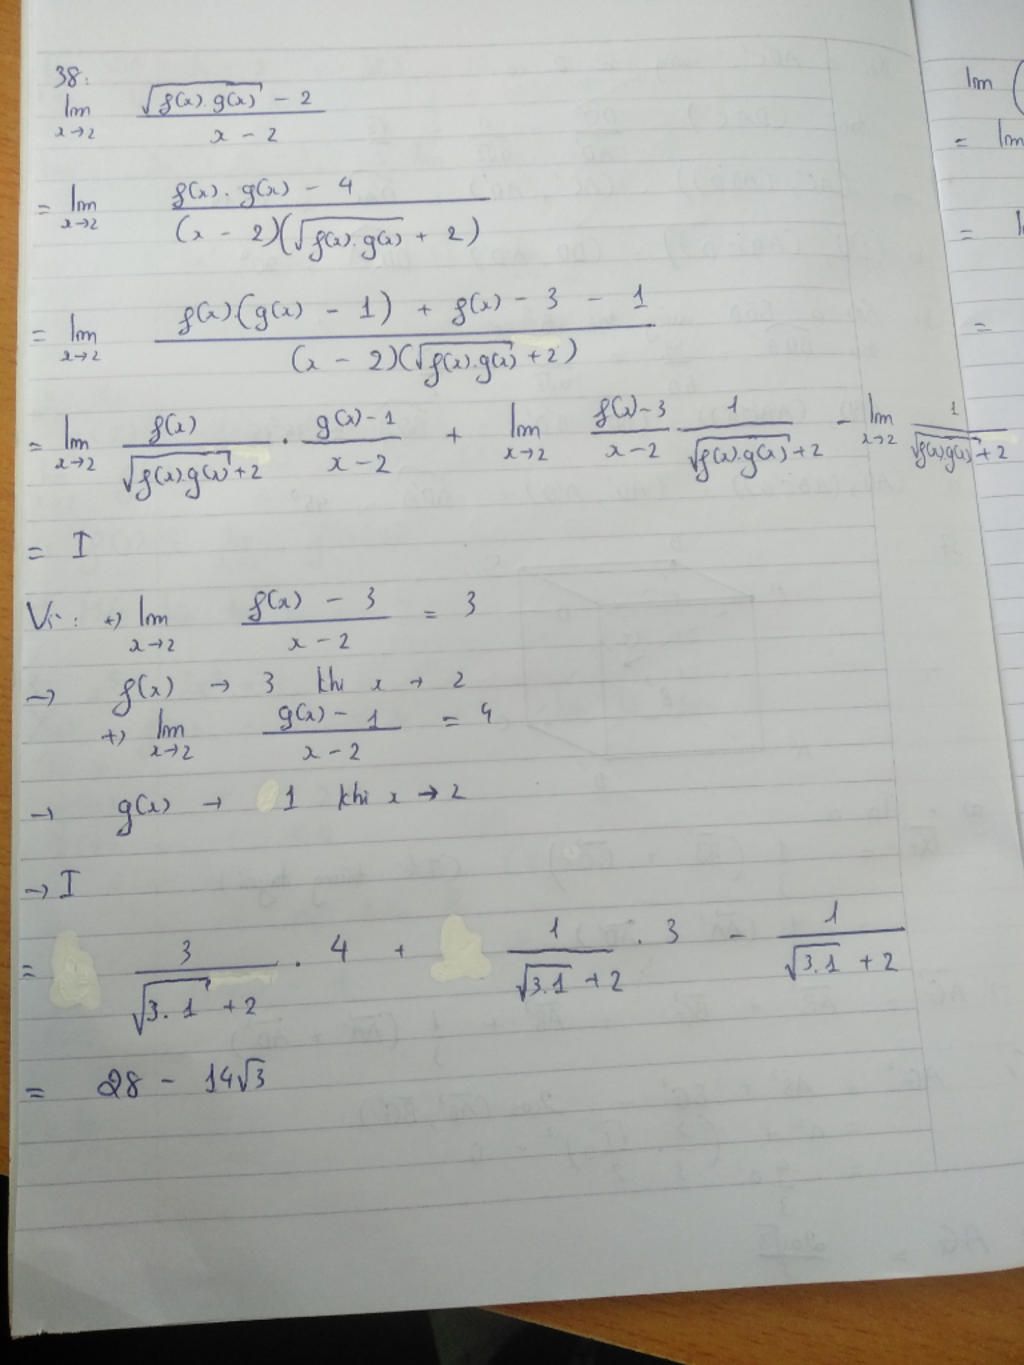 38:
lim x→2 (√(f(x).g(x)) - 2)/(x - 2)
= lim x→2 (f(x).g(x) - 4)/((x - 2)(√(f(x).g(x)) + 2))
= lim x→2 (f(x).(g(x) - 1) + f(x) - 3 - 1)/((x - 2)(√(f(x).g(x)) + 2))
= lim x→2 f(x)/(√(f(x).g(x)) + 2) . (g(x) - 1)/(x - 2) + lim x→2 (f(x) - 3)/(x - 2) 1/(√(f(x).g(x)) + 2) - lim x→2 1/(√(f(x).g(x)) + 2)
= I
Vì: +) lim x→2 (f(x) - 3)/(x - 2) = 3
→ f(x) → 3 khi x → 2
+) lim x→2 (g(x) - 1)/(x - 2) = 4
→ g(x) → 1 khi x → 2
→ I
= 3/(√(3.1) + 2) . 4 + 1/(√(3.1) + 2) . 3 - 1/(√(3.1) + 2)
= 28 - 14√3
lim (
= lim
=
=